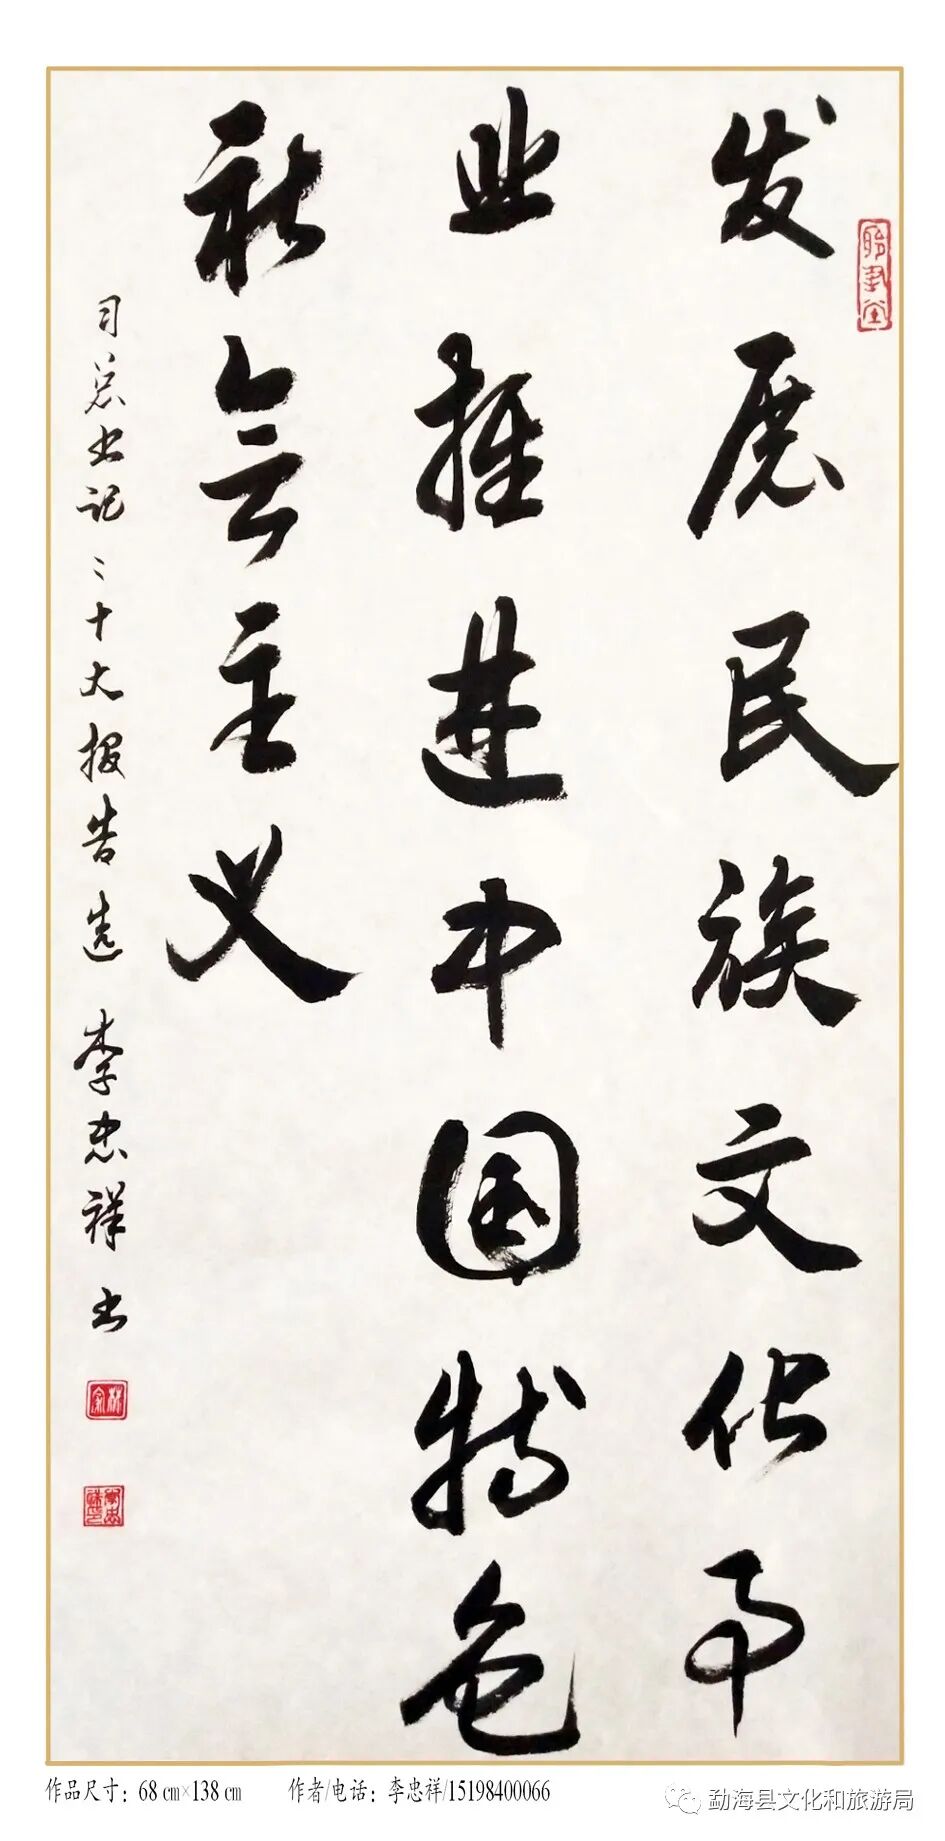 发展民族文化事
业推进中国特色
社会主义
习总书记二十大报告选 李忠祥书
作品尺寸：68㎝×138㎝ 作者/电话：李忠祥/15198400066
勐海县文化和旅游局